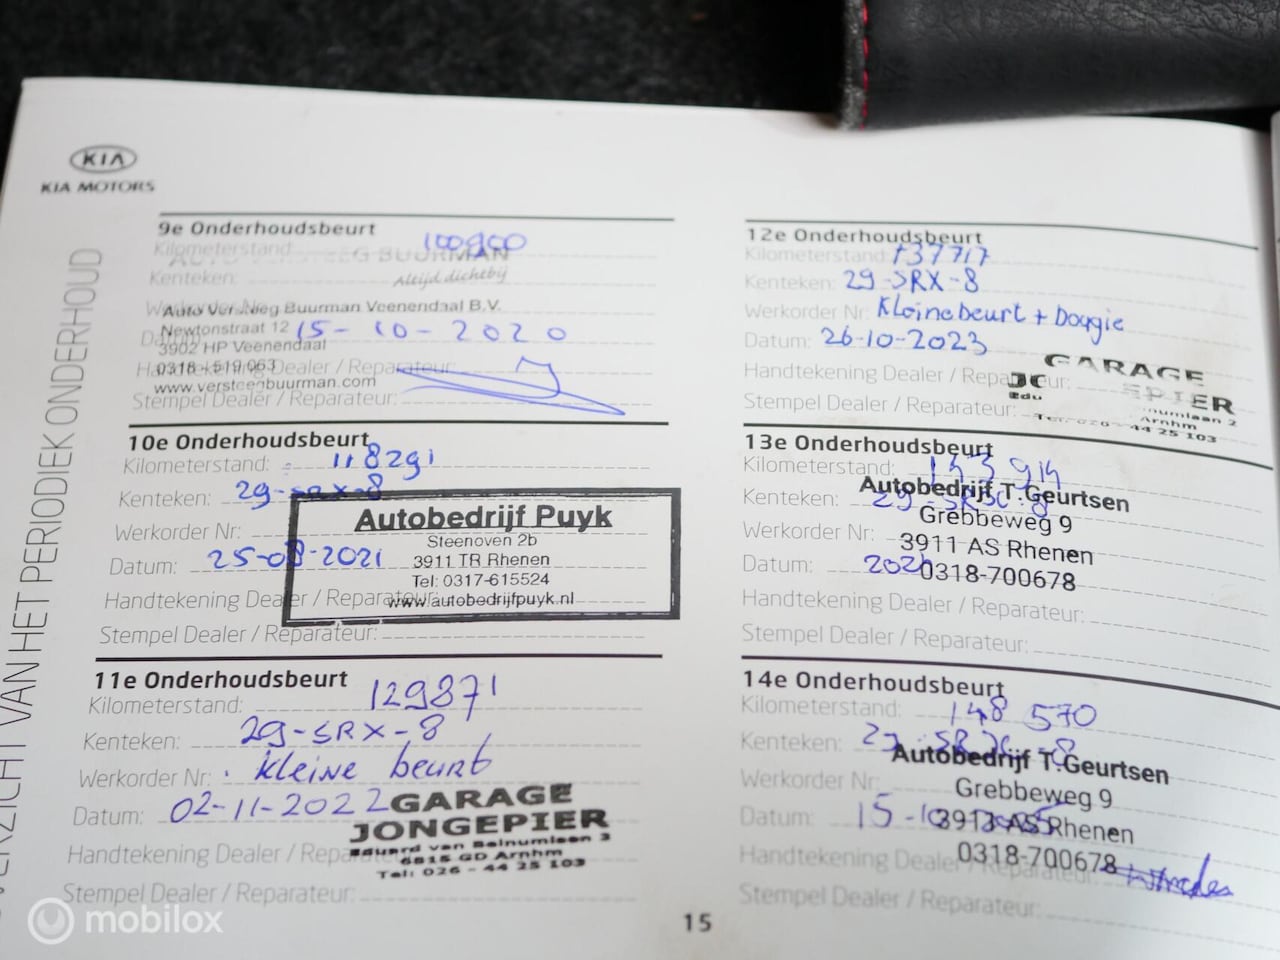 KIA
KIA MOTORS
OVERZICHT VAN HET PERIODIEK ONDERHOUD
9e Onderhoudsbeurt
Kilometerstand: 100900
Altijd dichtbij
Kenteken:
Auto Versteeg Buurman Veenendaal B.V.
Newtonstraat 12
Datum: 15-10-2020
3902 HP Veenendaal
0318 - 519 063
Handtekening Dealer / Reparateur:
www.versteegbuurman.com
Stempel Dealer / Reparateur:
10e Onderhoudsbeurt
Kilometerstand: 118291
Kenteken: 29-SRX-8
Werkorder Nr:
Datum: 25-08-2021
Handtekening Dealer / Reparateur:
Stempel Dealer / Reparateur:
Autobedrijf Puyk
Steenoven 2b
3911 TR Rhenen
Tel: 0317-615524
www.autobedrijfpuyk.nl
11e Onderhoudsbeurt
Kilometerstand: 129871
Kenteken: 29-SRX-8
Werkorder Nr: kleine beurt
Datum: 02-11-2022
Handtekening Dealer / Reparateur:
Stempel Dealer / Reparateur:
GARAGE
JONGEPIER
Eduard van Beinumlaan 2
6815 GD Arnhem
Tel: 026 - 44 25 103
12e Onderhoudsbeurt
Kilometerstand: 137717
Kenteken: 29-SRX-8
Werkorder Nr: Kleine beurt +
Datum: 26-10-2023
Handtekening Dealer / Reparateur:
Stempel Dealer / Reparateur:
GARAGE
13e Onderhoudsbeurt
Kilometerstand: 143 914
Kenteken: 29-SRX-8
Werkorder Nr:
Datum: 2024
Handtekening Dealer / Reparateur:
Stempel Dealer / Reparateur:
Autobedrijf T.Geurtsen
Grebbeweg 9
3911 AS Rhenen
0318-700678
14e Onderhoudsbeurt
Kilometerstand: 148 570
Kenteken: 29-SRX-8
Werkorder Nr:
Datum: 15-10-2025
Handtekening Dealer / Reparateur:
Stempel Dealer / Reparateur:
Autobedrijf T.Geurtsen
Grebbeweg 9
3911 AS Rhenen
0318-700678
15
mobilox